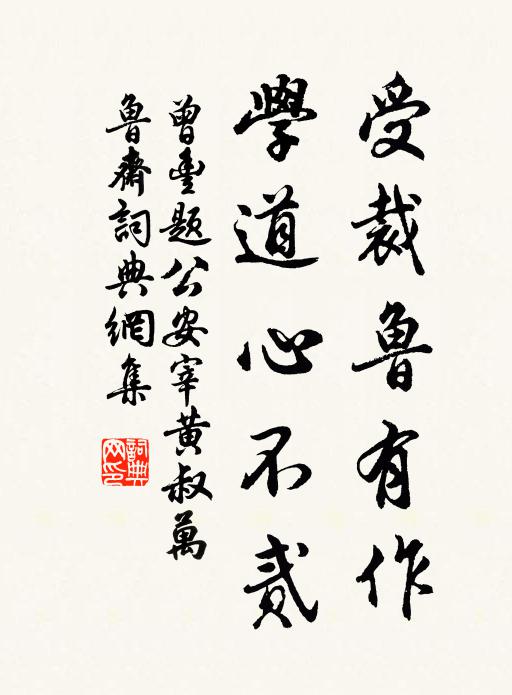 受裁魯有作
學道心不貳
曾豐題公安宰黃叔萬
魯齋詞典網集
詞典網印